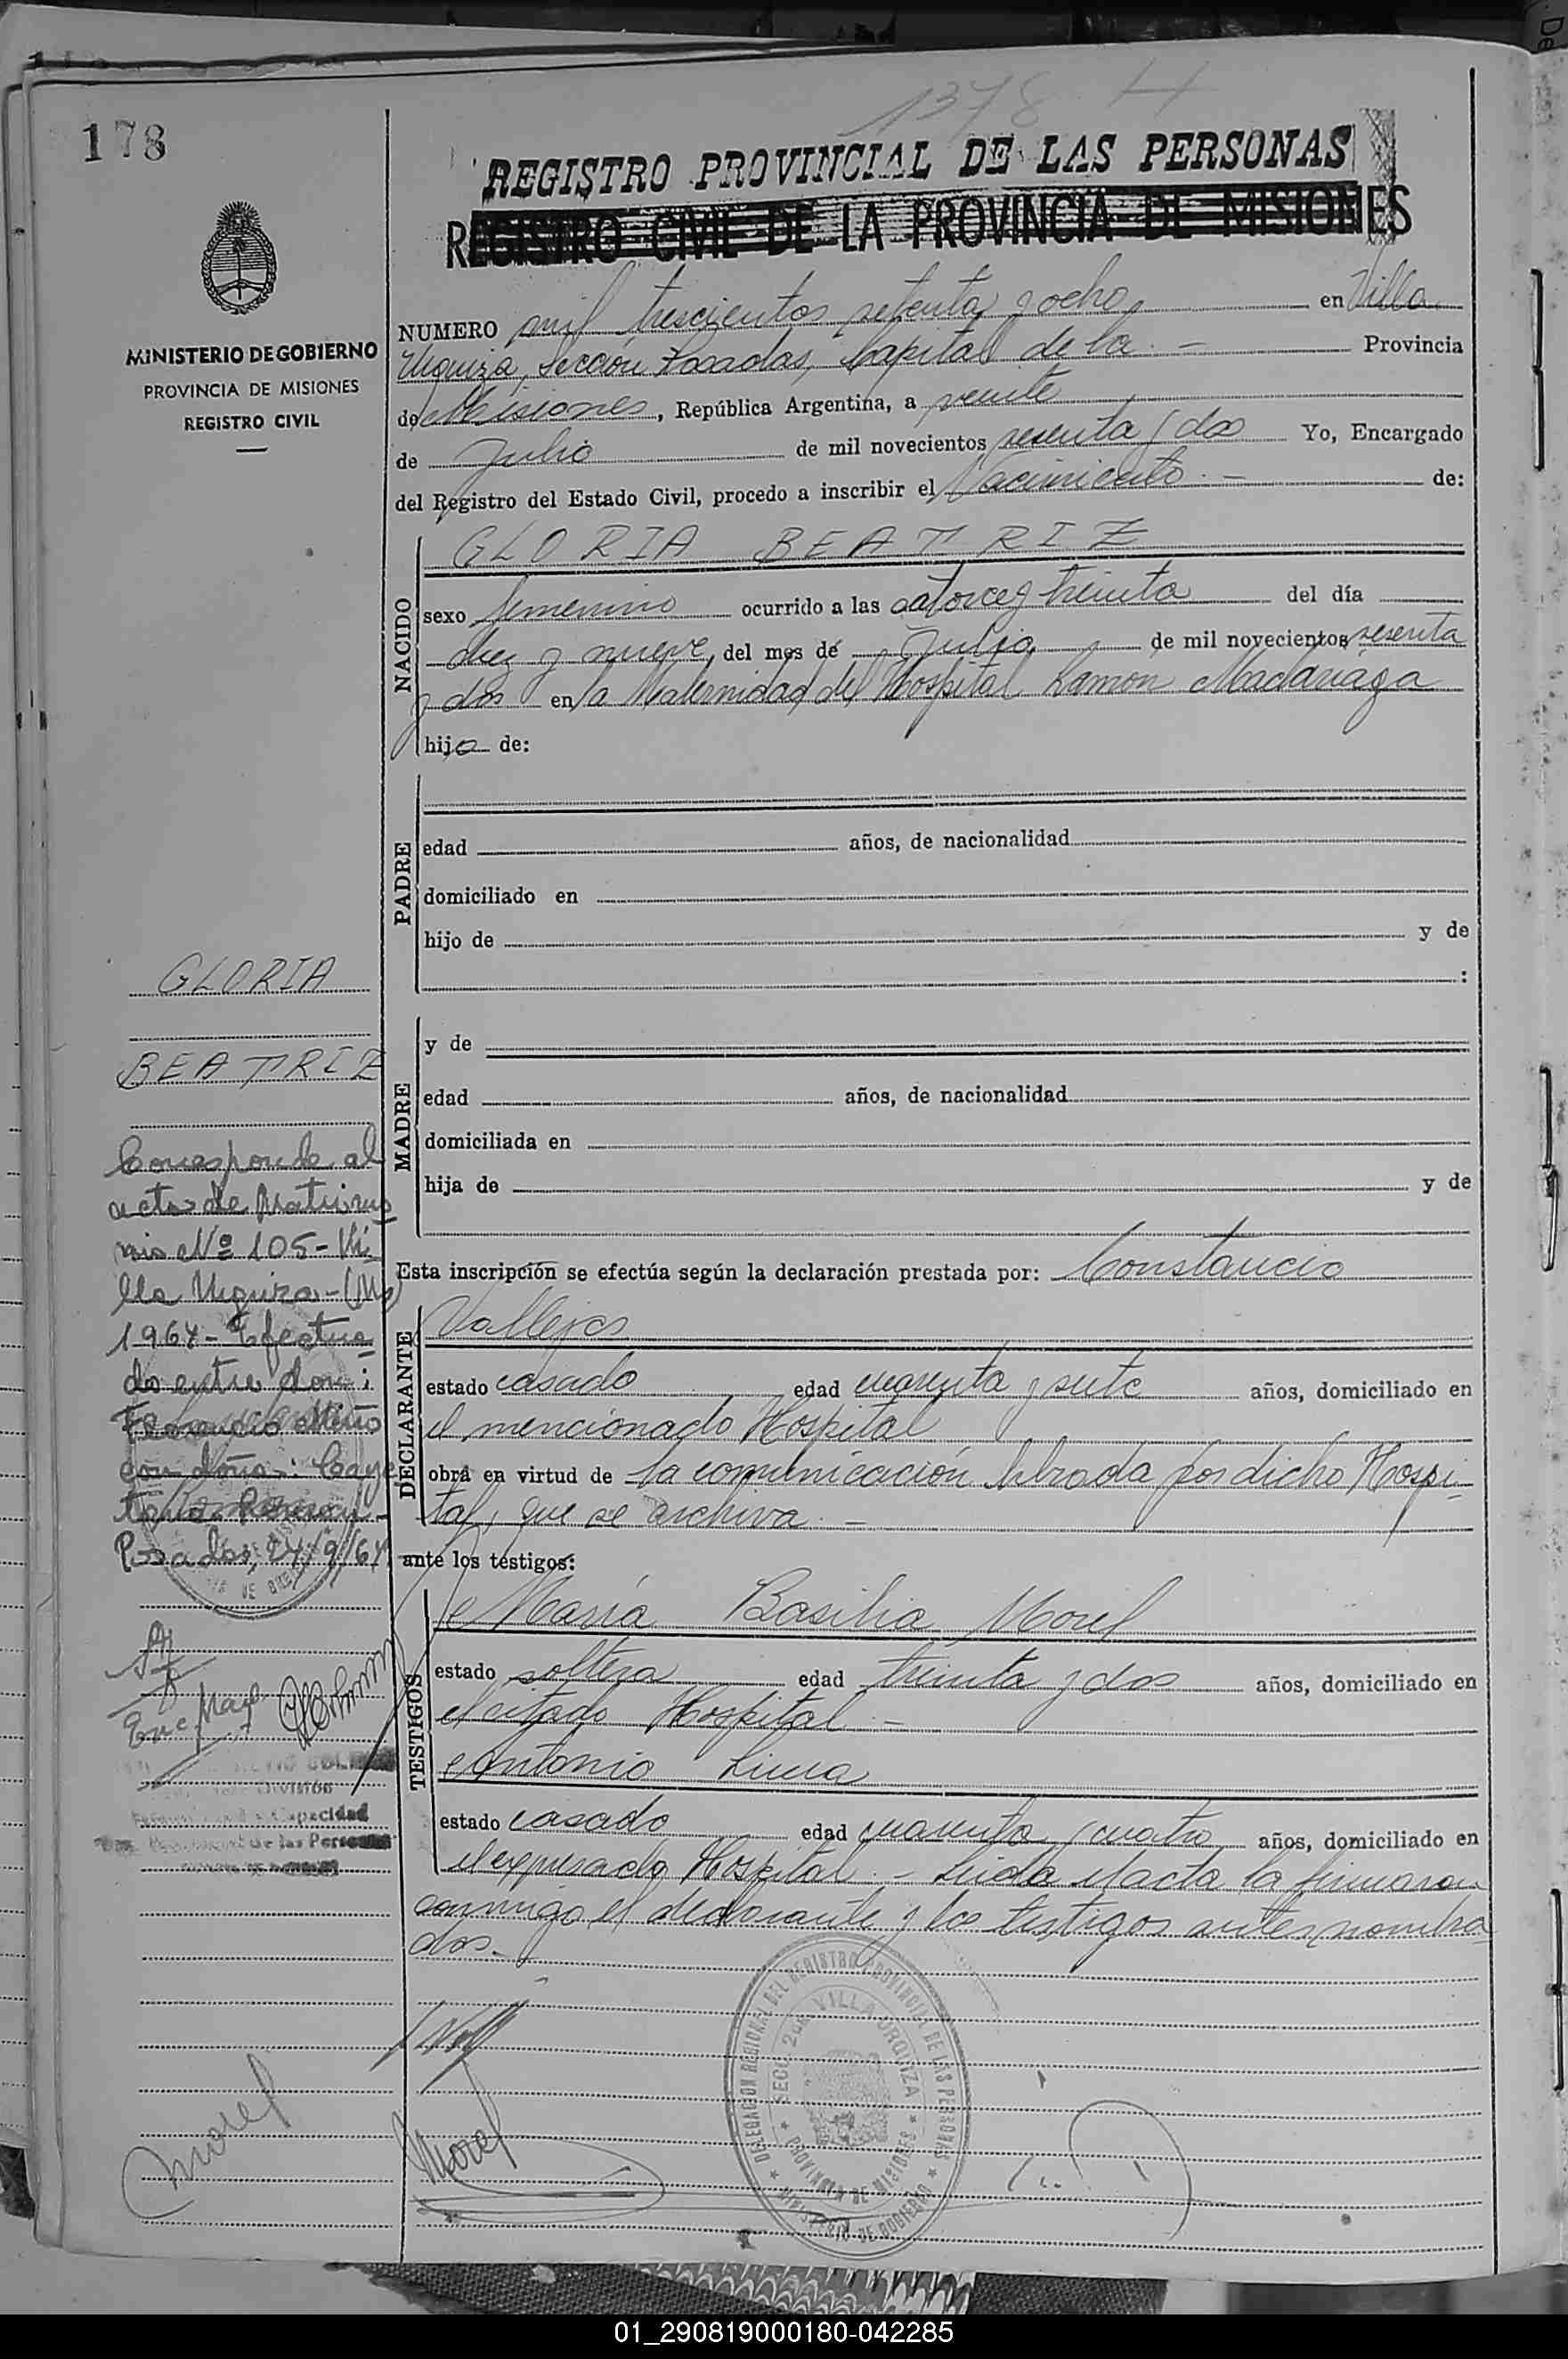 1378
178
REGISTRO PROVINCIAL DE LAS PERSONAS
REGISTRO CIVIL DE LA PROVINCIA DE MISIONES
MINISTERIO DE GOBIERNO
PROVINCIA DE MISIONES
REGISTRO CIVIL
NUMERO mil trescientos setenta y ocho en Villa
Urquiza, Sección Posadas, Capital de la - Provincia
de Misiones, República Argentina, a veinte
de Julio de mil novecientos sesenta y dos Yo, Encargado
del Registro del Estado Civil, procedo a inscribir el Nacimiento - de:
NACIDO
GLORIA BEATRIZ
sexo femenino ocurrido a las catorce y treinta del día
diez y nueve, del mes de Julio de mil novecientos sesenta
y dos en la Maternidad del Hospital Ramon Madariaga
hija de:
PADRE
edad años, de nacionalidad
domiciliado en
hijo de y de
:
MADRE
y de
edad años, de nacionalidad
domiciliada en
hija de y de
Esta inscripción se efectúa según la declaración prestada por: Constancio
DECLARANTE
Vallejos
estado casado edad cuarenta y siete años, domiciliado en
el mencionado Hospital
obra en virtud de la comunicación librada por dicho Hospi-
tal, que se archiva. -
ante los testigos:
TESTIGOS
María Basilia Morel
estado soltera edad treinta y dos años, domiciliado en
el citado Hospital. -
Antonio Lima
estado casado edad cuarenta y cuatro años, domiciliado en
el expresado Hospital. - Leida el acta la firmaron
conmigo el declarante y los testigos antes nombra
dos. -
GLORIA
BEATRIZ
Corresponde al
acta de Matrimo
nio Nº 105 - Vi
lla Urquiza - (Ms)
1964 - Efectua
do entre don:
Miño
con doña: Caye
tana
Posadas, 24/9/64
División
Capacidad
de las Personas
Morel
Morel
DELEGACION REGIONAL DEL REGISTRO PROVINCIAL DE LAS PERSONAS
SECC. 2da. VILLA URQUIZA
PROVINCIA DE MISIONES
MINISTERIO DE GOBIERNO
01_290819000180-042285